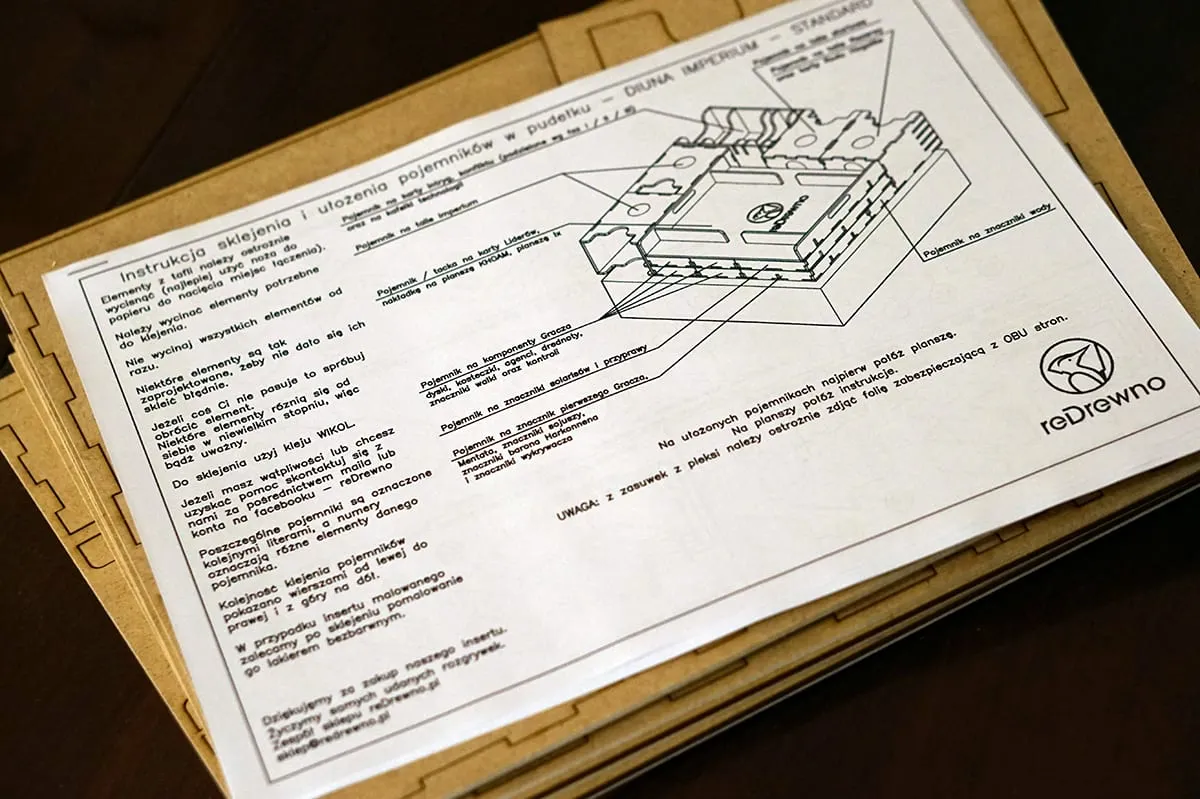 Instrukcja sklejenia i ułożenia pojemników w pudełku – DIUNA IMPERIUM – STANDARD
Elementy z tafli należy ostrożnie
wycisnąć (najlepiej użyć noża do
papieru do nacięcia miejsc łączenia).
Należy wycinać elementy potrzebne
do klejenia.
Nie wycinaj wszystkich elementów od
razu.
Niektóre elementy są tak
zaprojektowane, żeby nie dało się ich
skleić błędnie.
Jeżeli coś Ci nie pasuje to spróbuj
obrócić element.
Niektóre elementy różnią się od
siebie w niewielkim stopniu, więc
bądź uważny.
Do sklejenia użyj kleju WIKOL.
Jeżeli masz wątpliwości lub chcesz
uzyskać pomoc skontaktuj się z
nami za pośrednictwem maila lub
konta na facebooku – reDrewno
Poszczególne pojemniki są oznaczone
kolejnymi literami, a numery
oznaczają różne elementy danego
pojemnika.
Kolejność klejenia pojemników
pokazano wierszami od lewej do
prawej i z góry na dół.
W przypadku insertu malowanego
zalecamy po sklejeniu pomalowanie
go lakierem bezbarwnym.
Dziękujemy za zakup naszego insertu.
Życzymy samych udanych rozgrywek.
Zespół sklepu reDrewno.pl
sklep@redrewno.pl
Pojemnik na karty intryg, konfliktu (podzielone wg faz I / II / III)
oraz na kafelki technologii
Pojemnik na talie Imperium
Pojemnik / tacka na karty Liderów,
nakładkę na planszę KHOAM, planszę Ix
Pojemnik na komponenty Gracza
dyski, kosteczki, agenci, drednoty,
znaczniki walki oraz kontroli
Pojemnik na znaczniki solarisów i przyprawy
Pojemnik na znacznik pierwszego Gracza,
Mentata, znaczniki sojuszy,
znaczniki barona Harkonnena
i znaczniki wykrywacza
Pojemnik na talie startowe
Pojemnik na talie
oraz karty
Pojemnik na znaczniki wody
reDrewno
Na ułożonych pojemnikach najpierw połóż planszę.
Na planszy połóż instrukcje.
UWAGA: z zasuwek z pleksi należy ostrożnie zdjąć folię zabezpieczającą z OBU stron.
reDrewno